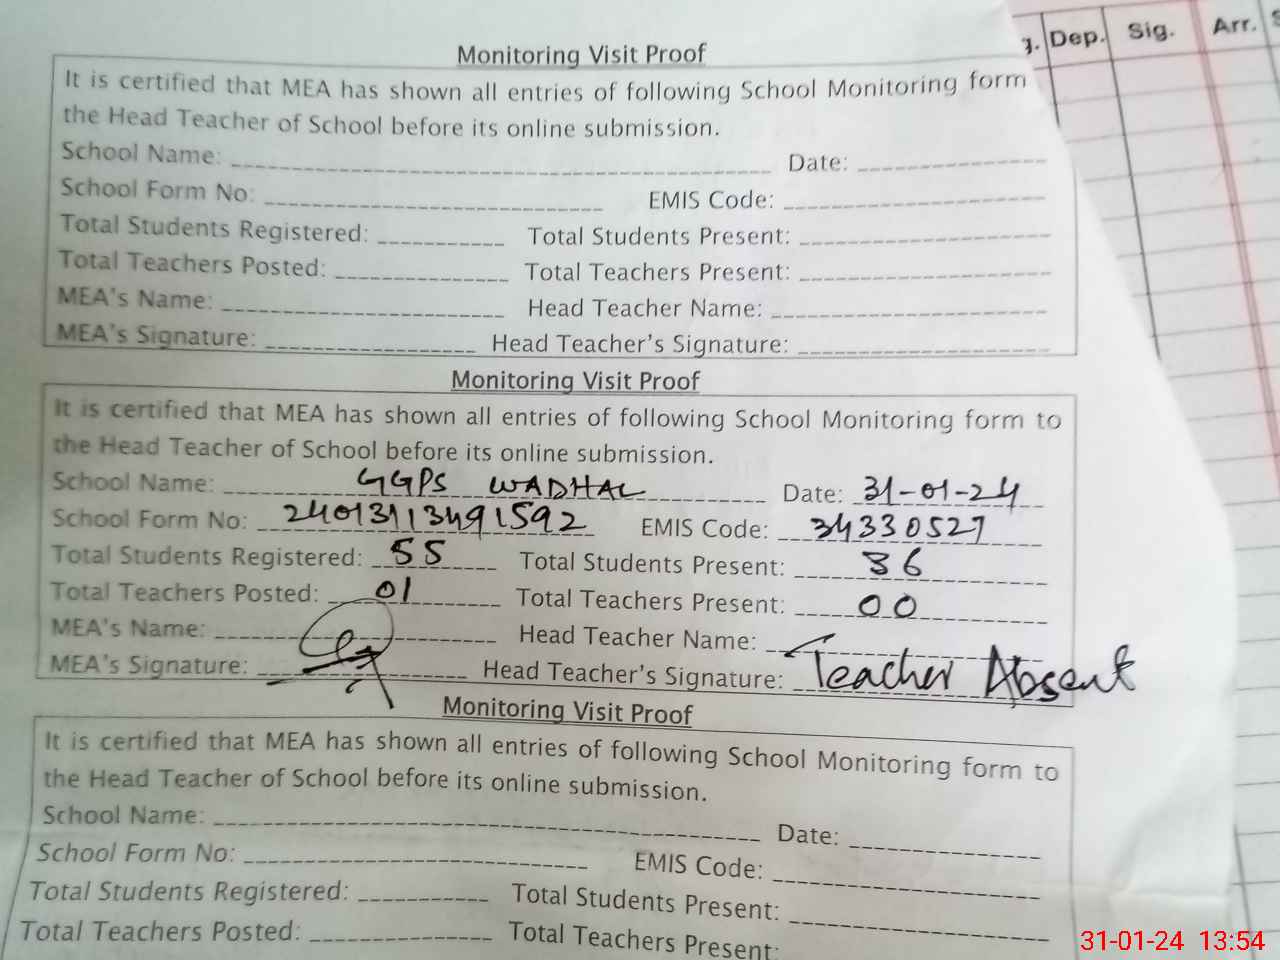 g. Dep. Sig. Arr. S
Monitoring Visit Proof
It is certified that MEA has shown all entries of following School Monitoring form
the Head Teacher of School before its online submission.
School Name: Date:
School Form No: EMIS Code:
Total Students Registered: Total Students Present:
Total Teachers Posted: Total Teachers Present:
MEA's Name: Head Teacher Name:
MEA's Signature: Head Teacher's Signature:
Monitoring Visit Proof
It is certified that MEA has shown all entries of following School Monitoring form to
the Head Teacher of School before its online submission.
School Name: GGPS WADHAL Date: 31-01-24
School Form No: 24013113491592 EMIS Code: 34330527
Total Students Registered: 55 Total Students Present: 36
Total Teachers Posted: 01 Total Teachers Present: 00
MEA's Name: Head Teacher Name:
MEA's Signature: Head Teacher's Signature: Teacher Absent
Monitoring Visit Proof
It is certified that MEA has shown all entries of following School Monitoring form to
the Head Teacher of School before its online submission.
School Name: Date:
School Form No: EMIS Code:
Total Students Registered: Total Students Present:
Total Teachers Posted: Total Teachers Present:
31-01-24 13:54